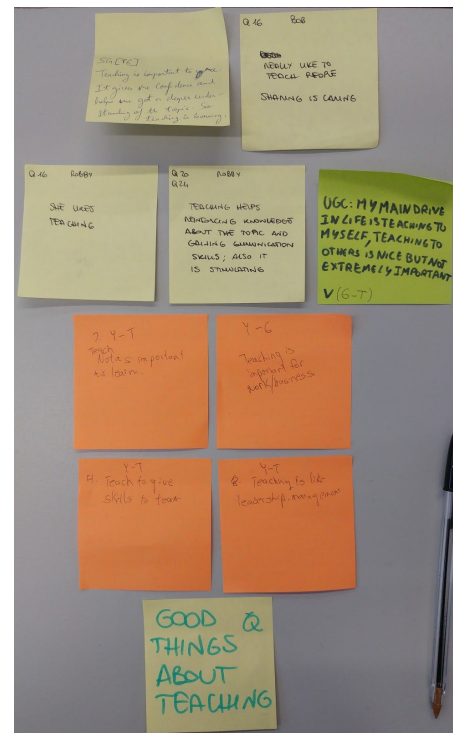 Teaching is important to me
It gives me confidence and
helps me get a deeper under-
standing of the topic. So
teaching is learning.
Q 16 BOB
REALLY LIKE TO
TEACH PEOPLE
SHARING IS CARING
Q 16 ROBBY
SHE LIKES
TEACHING
Q 20 ROBBY
Q 24
TEACHING HELPS
REINFORCING KNOWLEDGE
ABOUT THE TOPIC AND
GAINING COMMUNICATION
SKILLS; ALSO IT
IS STIMULATING
UGC: MY MAIN DRIVE
IN LIFE IS TEACHING TO
MYSELF, TEACHING TO
OTHERS IS NICE BUT NOT
EXTREMELY IMPORTANT
V (G-T)
2. Y-T
Teach
Not as important
as learn
Y-G
Teaching is
important for
work/business
Y-T
4. Teach to give
skills to team
Y-T
8. Teaching is like
leadership, management
GOOD
THINGS
ABOUT
TEACHING